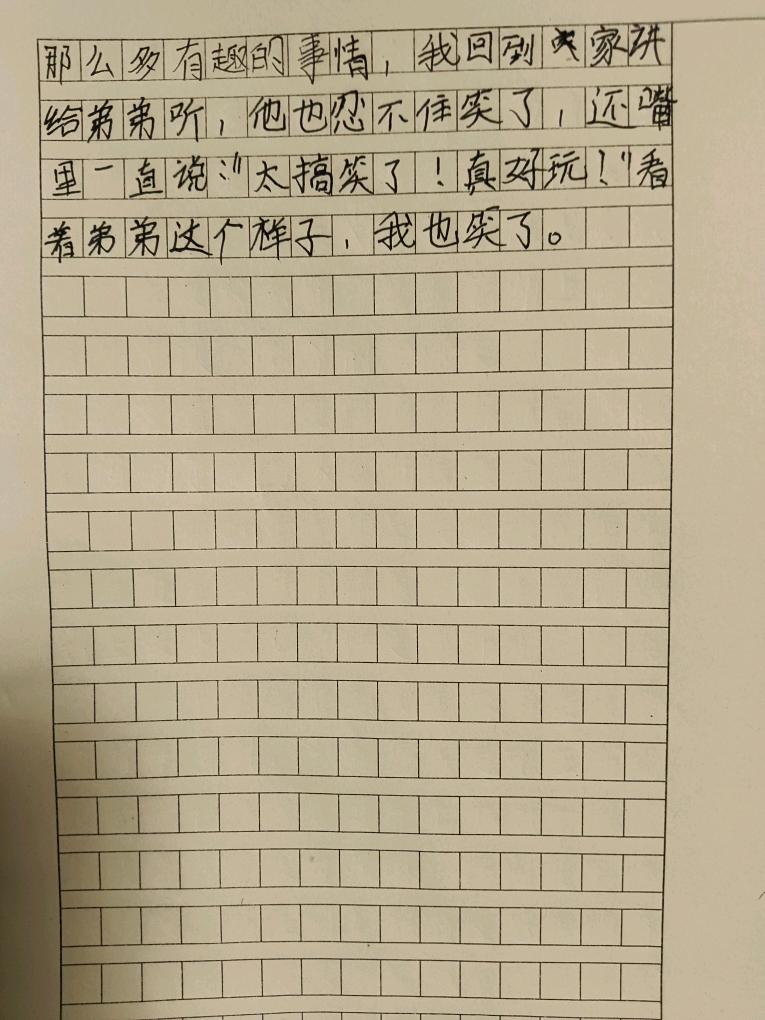 那么多有趣的事情，我回到家讲
给弟弟听，他也忍不住笑了，还嘴
里一直说：“太搞笑了！真好玩！”看
着弟弟这个样子，我也笑了。